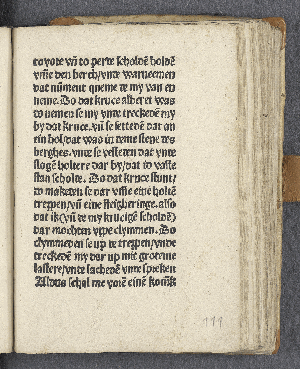 to vote vn̄ to perte scholdē holdē
vm̄e den berch/vnte warneemen
dat nūment queme te my van en
neme. Do dat kruce al beret was
to nemen se my vnte treckedē my
by dat kruce. vn̄ se lettedē dat an
ein hol/dat was in teme stene tes
berghes. vnte se vesteten dat vnte
slogē holtere dar by/dat to vaste
stan scholte. Do dat kruce stunt/
to maketen se dar vm̄e eine holtē
treppen/vn̄ eine steigheringe. also
dat ik(vn̄ te my krucigē scholdē)
dar mochten vppe clymmen. Do
clymmeden se vp te treppen/vnde
treckedē my dar vp mit groteme
lastere/vnte lachedē vnte spreken
Aldus schal me voiē einē konik
111